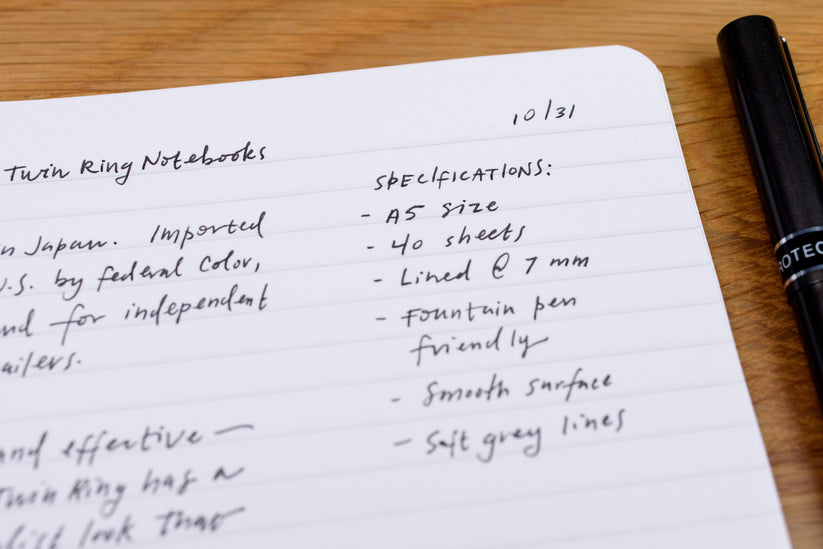 10/31
Twin Ring Notebooks
in Japan. Imported
U.S. by federal color,
and for independent
ailers.
and effective —
Twin Ring has a
list look that
SPECIFICATIONS:
- A5 size
- 40 sheets
- Lined @ 7 mm
- Fountain pen
friendly
- Smooth surface
- Soft grey lines
ROTEC